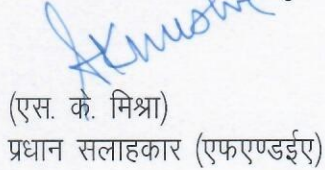 (एस. के. मिश्रा)
प्रधान सलाहकार (एफएण्डईए)